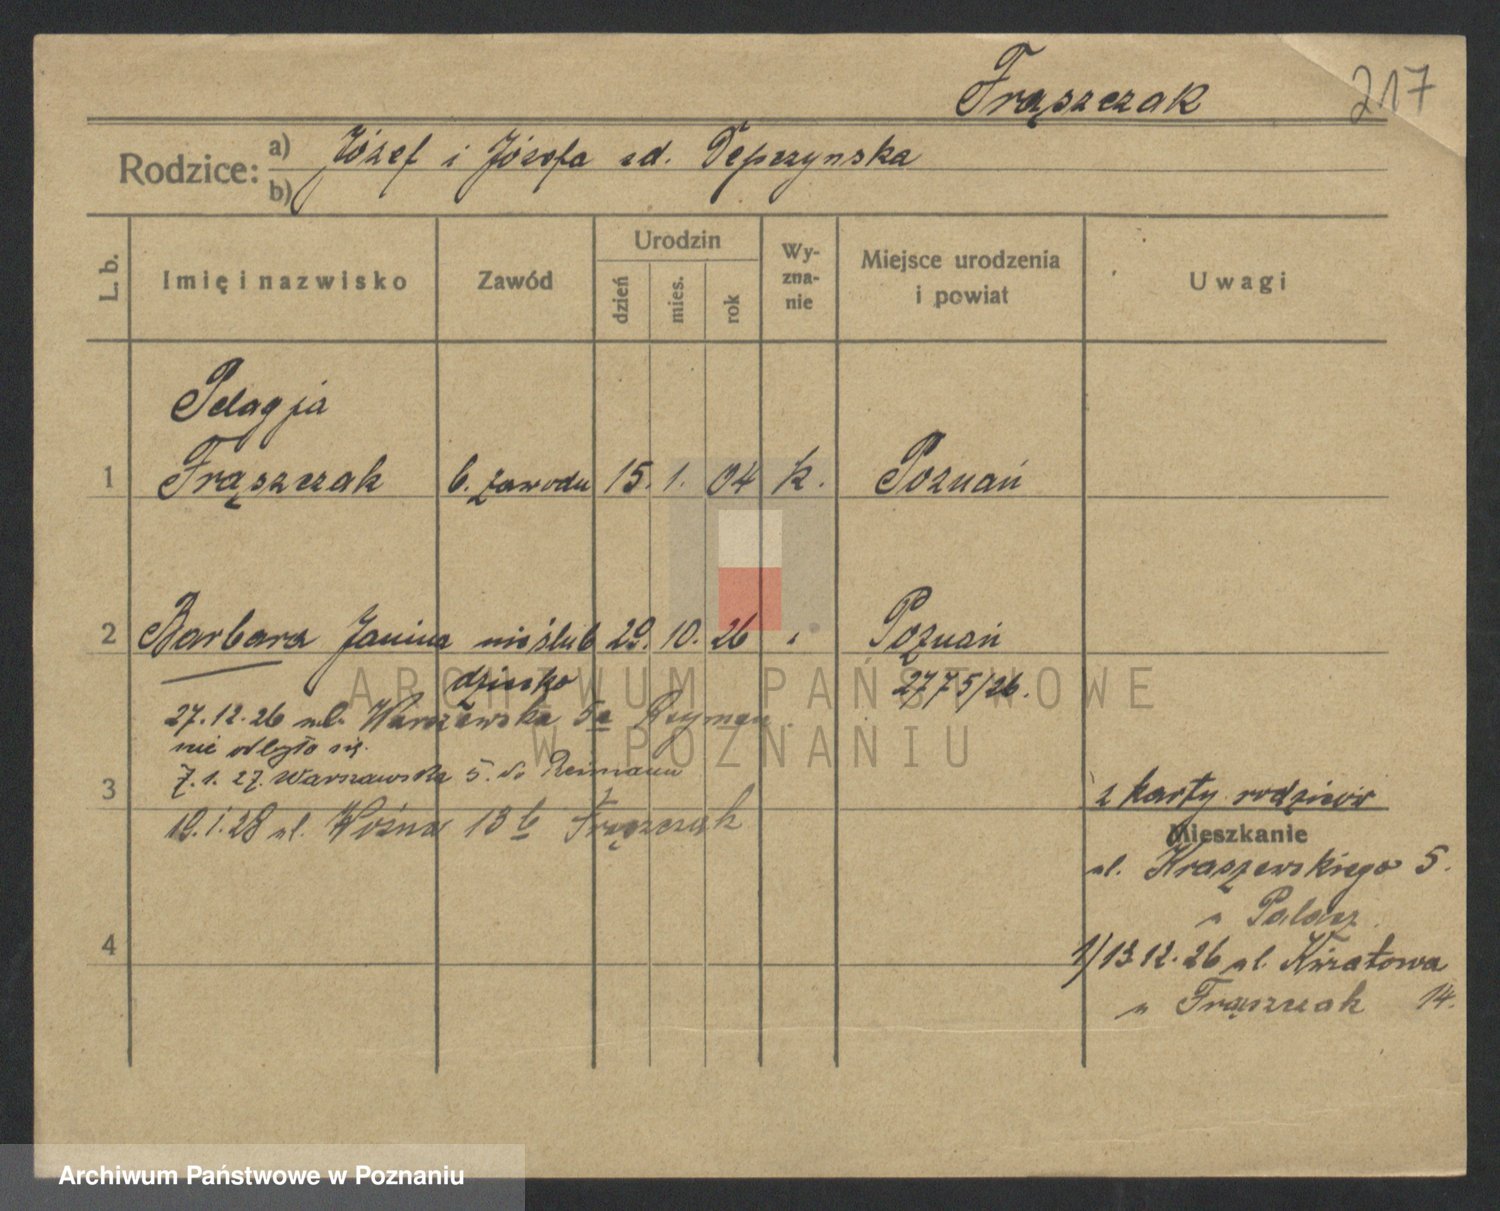 Frąszczak
217
Rodzice:
a) Józef i Józefa zd. Depczynska
b)
L. b.
Imię i nazwisko
Zawód
Urodzin
dzień
mies.
rok
Wy-
zna-
nie
Miejsce urodzenia
i powiat
Uwagi
Pelagja
1 Frąszczak b. zawodu 15. 1. 04 k. Poznań
2 Barbara Janina nieślub 29. 10. 26 " Poznań
dziecko 2775/26.
27.12.26 ul. Warszewska 5a Reyman
nie odbyło się.
7.1.27. Warszawska 5. b. Reimann
3
z karty rodziców
19.1.28 ul. Woźna 13b Frąszczak
Mieszkanie
ul. Kraszewskiego 5.
u Palacz
4
1/13.12.26 ul. Kwiatowa
u Frąszczak 14.
ARCHIWUM PAŃSTWOWE
W POZNANIU
Archiwum Państwowe w Poznaniu